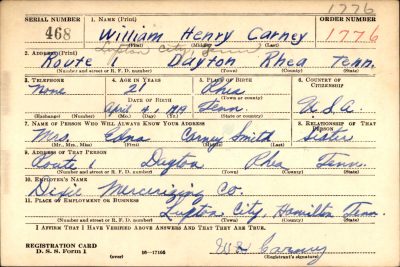 1776
SERIAL NUMBER 1. NAME (Print) ORDER NUMBER
468 William Henry Carney 1776
(First) (Middle) (Last)
Lupton City, Tenn
2. ADDRESS (Print)
Route 1 Dayton Rhea Tenn.
(Number and street or R. F. D. number) (Town) (County) (State)
3. TELEPHONE 4. AGE IN YEARS 5. PLACE OF BIRTH 6. COUNTRY OF CITIZENSHIP
None 21 Rhea
DATE OF BIRTH (Town or county)
April Tenn. U.S.A.
(Exchange) (Number) (Mo.) (Day) (Yr.) (State or country)
7. NAME OF PERSON WHO WILL ALWAYS KNOW YOUR ADDRESS 8. RELATIONSHIP OF THAT PERSON
Mrs. Edna Carney Smith Sister
(Mr., Mrs., Miss) (First) (Middle) (Last)
9. ADDRESS OF THAT PERSON
Route 1 Dayton Rhea Tenn.
(Number and street or R. F. D. number) (Town) (County) (State)
10. EMPLOYER'S NAME
Dixie Mercerizing Co.
11. PLACE OF EMPLOYMENT OR BUSINESS
Lupton City, Hamilton Tenn.
(Number and street or R. F. D. number) (Town) (County) (State)
I AFFIRM THAT I HAVE VERIFIED ABOVE ANSWERS AND THAT THEY ARE TRUE.
REGISTRATION CARD
D. S. S. Form 1 (over) 16—17105 Carney
(Registrant's signature)